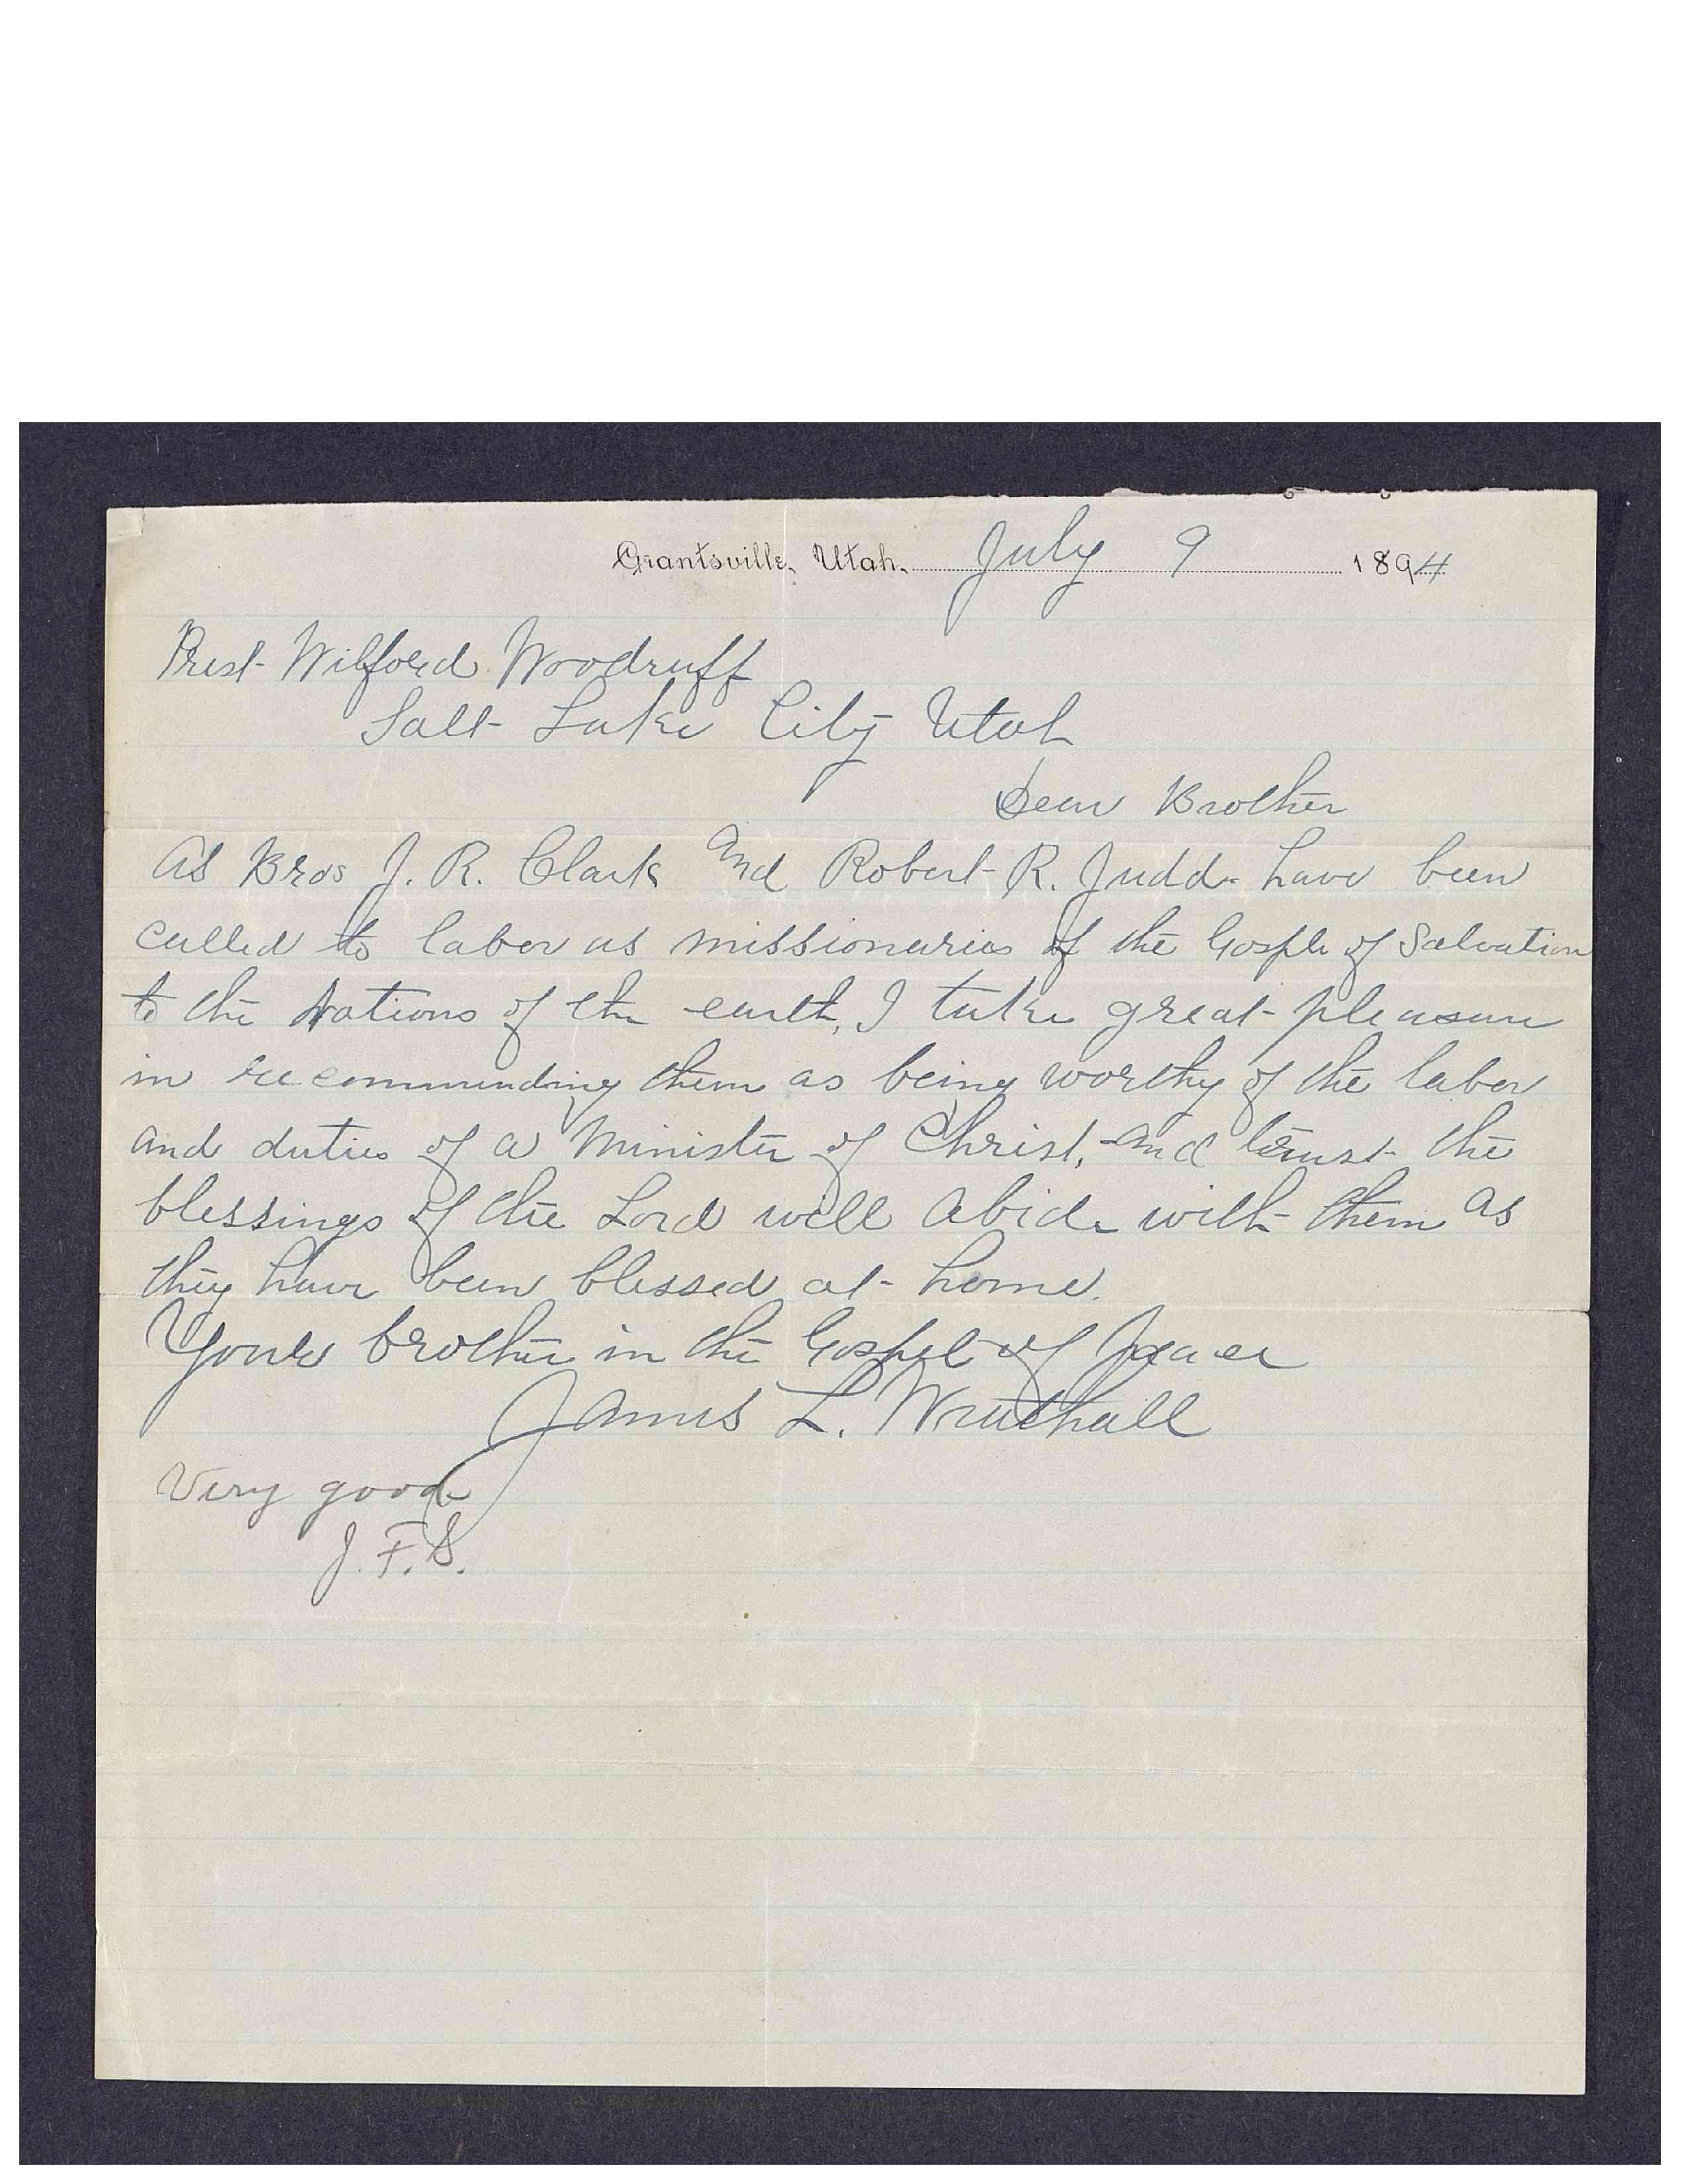 Grantsville, Utah, July 9 1894
Prest Wilford Woodruff
Salt Lake City Utah
Dear Brother
As Bros J. R. Clark and Robert R. Judd have been
called to labor as missionaries of the Gosple of Salvation
to the Nations of the earth, I take great pleasure
in recommending them as being worthy of the labor
and duties of a Minister of Christ, and trust the
blessings of the Lord will abide with them as
they have been blessed at home.
Your brother in the Gospel of Peace
James L. Wrathall
Very good
J. F. S.